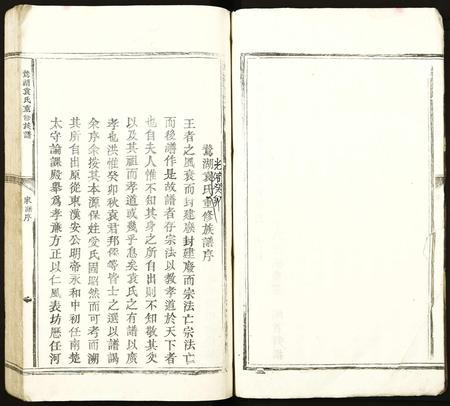 鵞湖袁氏重修族譜序
光緒癸卯
王者之風衰而封建廢封建廢而宗法亡宗法亡
而後譜作是故譜者存宗法以教孝道於天下者
也自夫人惟不知其身之所自出則不知敬其父
以及其祖而孝道或幾乎息矣袁氏之有譜以廣
孝也洪惟癸卯秋袁君邦 等皆士之選以譜謁
余序余按其本源保姓受氏固昭然而可考而溯
其所自出原從東漢安公明帝永和中初任南楚
太守論課殿舉為孝廉方正以仁風表坊歷任河
鵞湖袁氏重修族譜
序